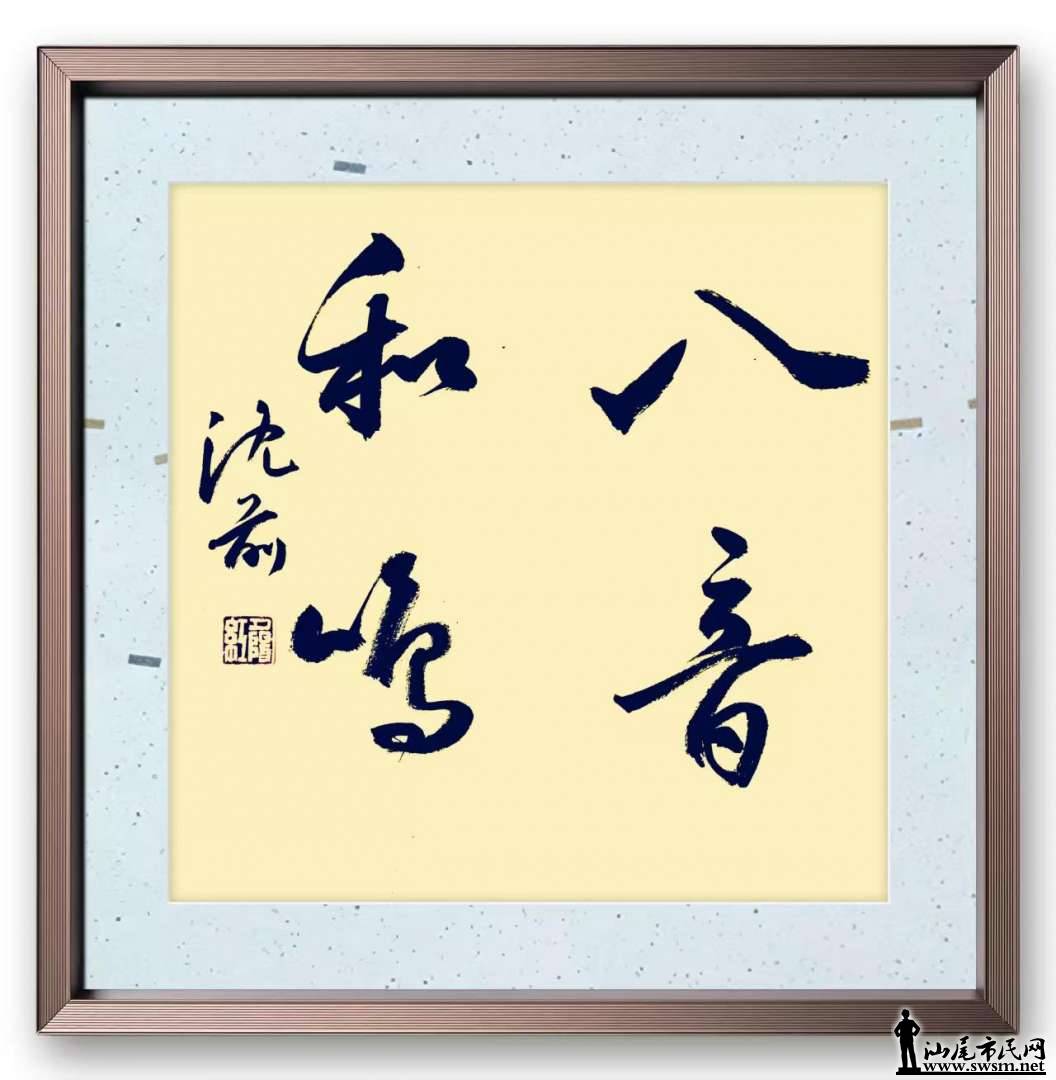 八音
和鸣
沈前
汕尾市民网
www.swsm.net